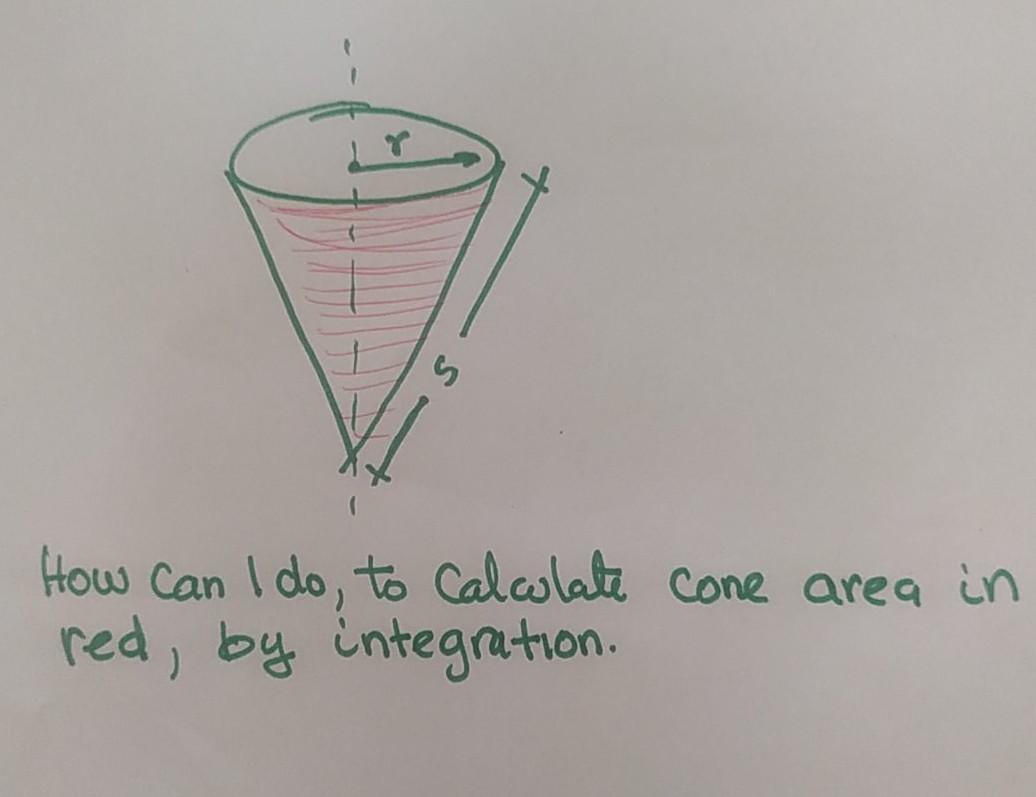 r
S
How can I do, to Calculate cone area in
red, by integration.